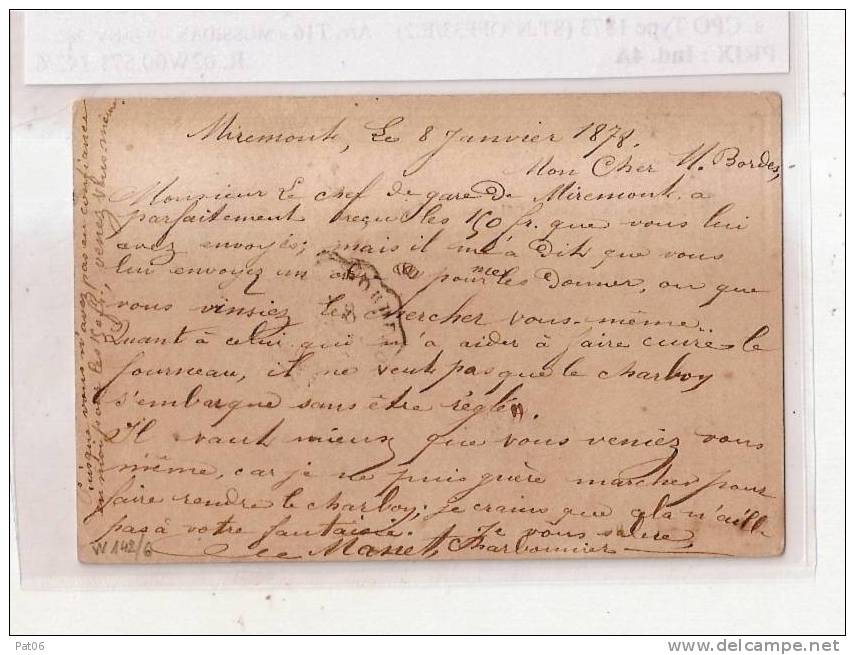 Miremont, Le 8 Janvier 1878.
Mon Cher M. Bordes,
Monsieur Le chef de gare De Miremont a
parfaitement reçu les 150 fr. que vous lui
avez envoyés; mais il m'a Dit que vous
lui envoyez un pour me les Donner, ou que
vous vinsiez les chercher vous-même..
Quant à celui qui m'a aider à faire cuire le
fourneau, il ne veut pas que le charbon
s'embarque sans être réglé.
Il vaut mieux que vous veniez vous
même, car je ne puis guère marcher pour
faire rendre le charbon; je crains que cela n'aille
pas à votre fantaisie. Je vous salue,
Manet, Charbonnier
Puisque vous n'avez pas eu confiance
en moi pour les 150 fr., venez vous même.
W 142/6
Pat06
www.delcampe.net